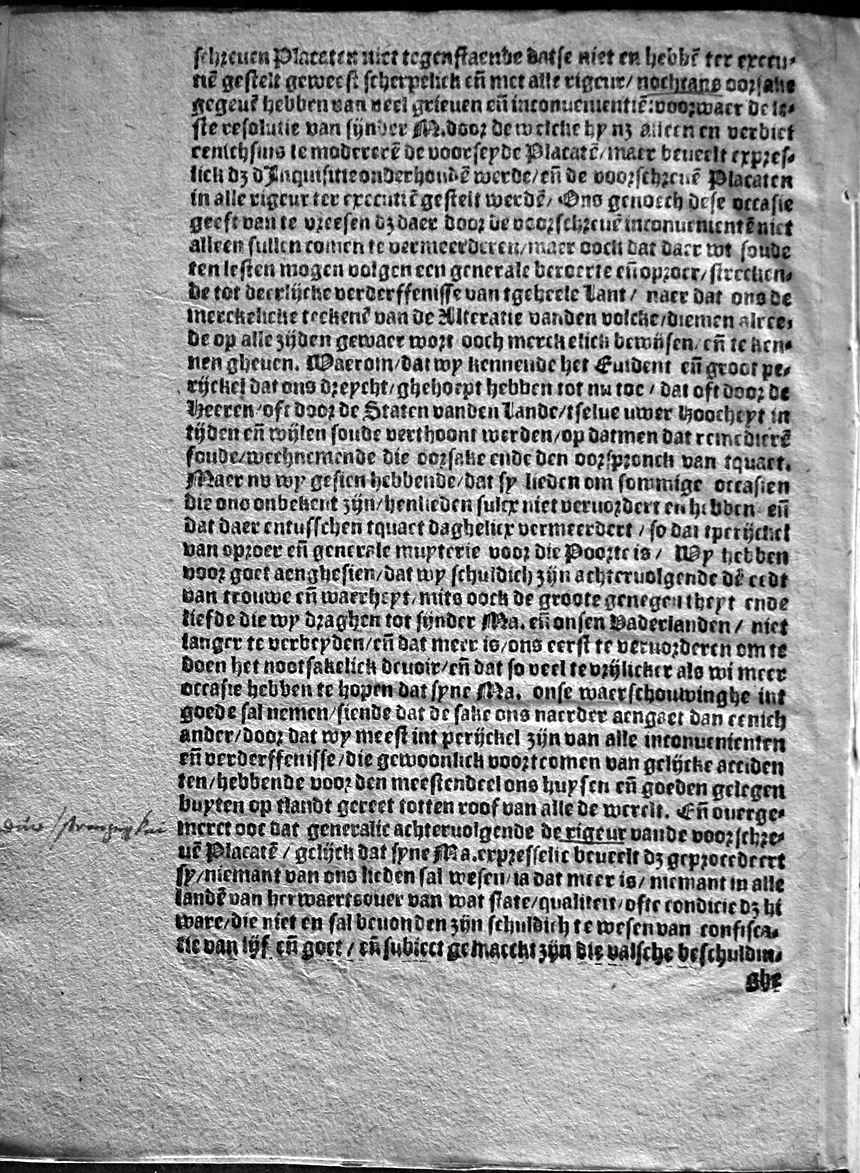 schreuen Placaten niet tegenstaende datse niet en hebbē ter execu⸗
tiē gestelt geweest scherpelick eñ met alle rigeur/ nochtans oorsake
gegeuē hebben van veel grieuen eñ inconuenientiē: voorwaer de le⸗
ste resolutie van sijnder M. door de welcke hy nz alleen en verbiet
eenichsins te modererē de voorseyde Placatē/ maer beueelt expres⸗
lick dz d'Inquisitie onderhoudē werde/ eñ de voorschreuē Placaten
in alle rigeur ter executiē gestelt werdē/ Ons genoech dese occasie
geeft van te vreesen dz daer door de voorschreuē inconuenientē niet
alleen sullen comen te vermeerderen/ maer oock dat daer wt soude
ten lesten mogen volgen een generale beroerte eñ oproer/ strecken⸗
de tot deerlijcke verderffenisse van tgeheele Lant/ naer dat ons de
merckelicke teekenē van de Alteratie vanden volcke/ diemen alree⸗
de op alle zijden gewaer wort ooch merckelick bewijsen/ eñ te ken⸗
nen gheuen. Waerom/ dat wy kennende het Euident eñ groot pe⸗
rijckel dat ons dreycht/ ghehoept hebben tot nu toe/ dat oft door de
Heeren/ oft door de Staten vanden Lande/ tselue uwer Hoocheyt in
tijden eñ wijlen soude verthoont werden/ op datmen dat remedierē
soude/ wechnemende die oorsake ende den oorspronck van tquaet.
Maer nu wy gesien hebbende/ dat sy lieden om sommige occasien
die ons onbekent zijn/ henlieden sulcx niet veruordert en hebben eñ
dat daer entusschen tquaet daghelicx vermeerdert/ so dat tperijckel
van oproer eñ generale muyterie voor die Poorte is/ Wy hebben
voor goet aenghesien/ dat wy schuldich zijn achteruolgende dē eedt
van trouwe eñ waerheyt/ mits oock de groote genegentheyt ende
liefde die wy draghen tot sijnder Ma. eñ onsen Vaderlanden/ niet
langer te verbeyden/ eñ dat meer is/ ons eerst te veruorderen om te
doen het nootsakelick deuoir/ eñ dat so veel te vrijlicker als wi meer
occasie hebben te hopen dat syne Ma. onse waerschouwinghe int
goede sal nemen/ siende dat de sake ons naerder aengaet dan eenich
ander/ door dat wy meest int perijckel zijn van alle inconuenienten
eñ verderffenisse/ die gewoonlick voortcomen van gelijcke acciden
ten/ hebbende voor den meestendeel ons huysen eñ goeden gelegen
buyten op tlandt gereet totten roof van alle de werelt. Eñ ouerge⸗
merct ooc dat generalic achteruolgende de rigeur vande voorschre⸗
uē Placatē/ gelijck dat syne Ma. expresselic beueelt dz geprocedeert
sy/ niemant van ons lieden sal wesen/ ia dat meer is/ niemant in alle
landē van herwaertsouer van wat state/ qualiteit/ ofte conditie dz hi
ware/ die niet en sal beuonden zijn schuldich te wesen van confisca⸗
tie van lijf eñ goet/ eñ subiect gemaeckt zijn die valsche beschuldin⸗
ghe